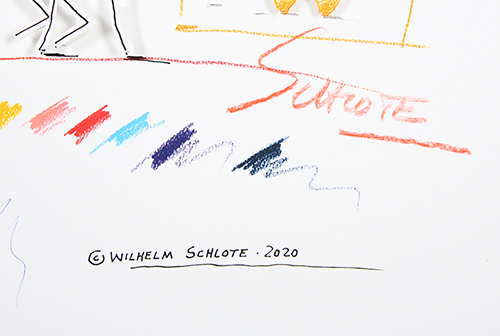 SCHLOTE
© WILHELM SCHLOTE · 2020